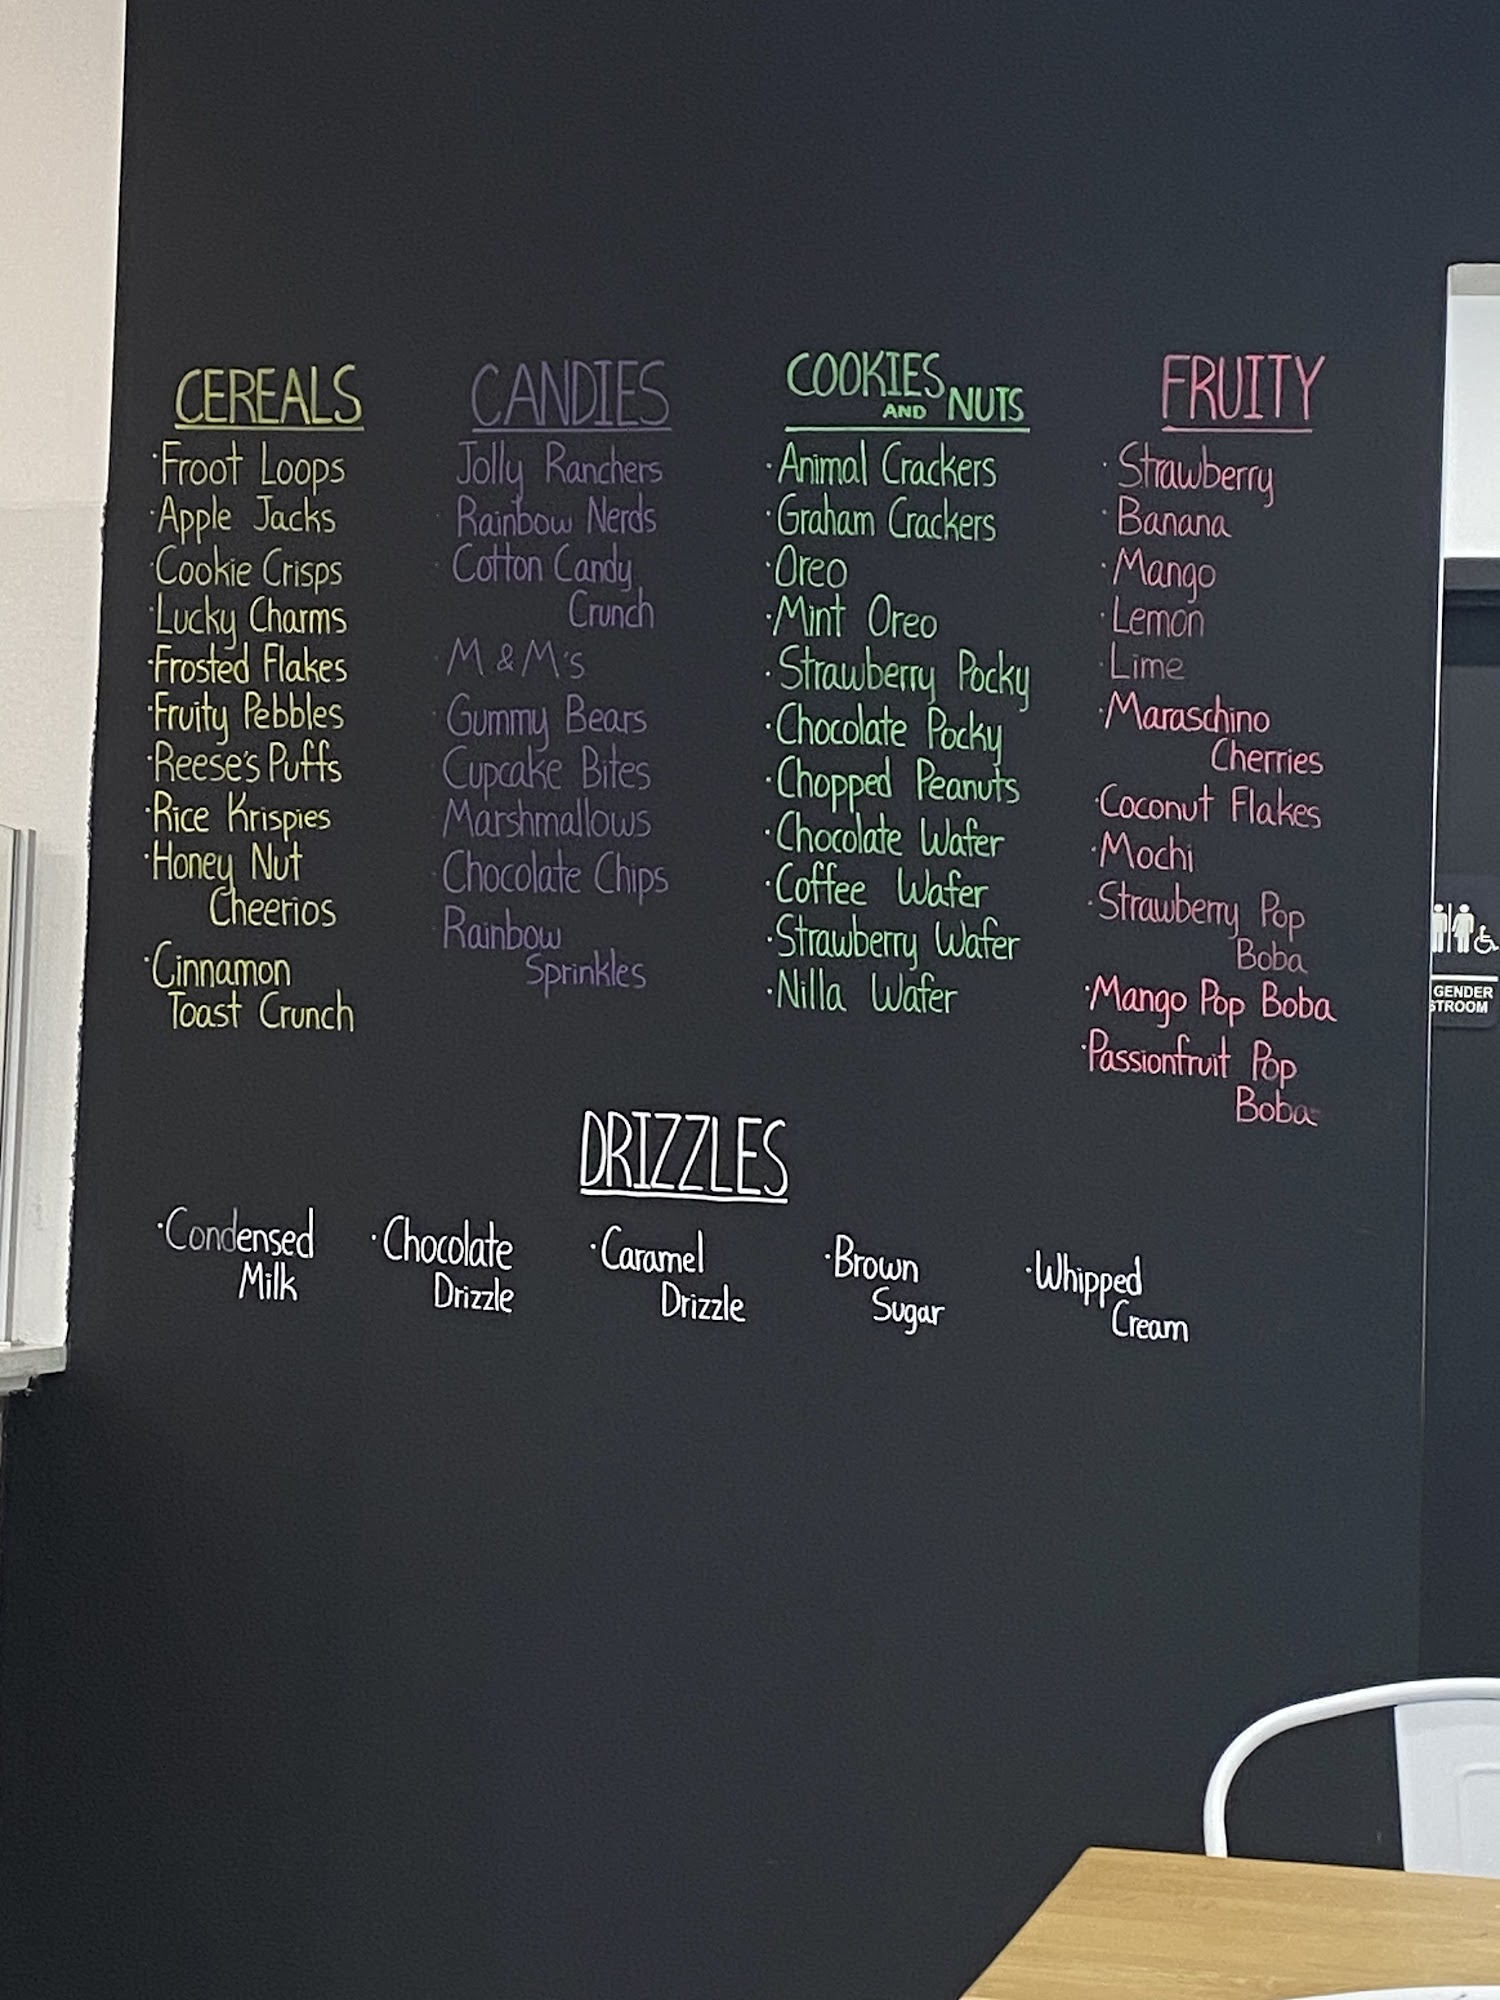 CEREALS
·Froot Loops
·Apple Jacks
·Cookie Crisps
·Lucky Charms
·Frosted Flakes
·Fruity Pebbles
·Reese's Puffs
·Rice Krispies
·Honey Nut
Cheerios
·Cinnamon
Toast Crunch
CANDIES
Jolly Ranchers
· Rainbow Nerds
· Cotton Candy
Crunch
· M & M's
· Gummy Bears
· Cupcake Bites
· Marshmallows
· Chocolate Chips
· Rainbow
Sprinkles
COOKIES
AND NUTS
·Animal Crackers
·Graham Crackers
·Oreo
·Mint Oreo
·Strawberry Pocky
·Chocolate Pocky
·Chopped Peanuts
·Chocolate Wafer
·Coffee Wafer
·Strawberry Wafer
·Nilla Wafer
FRUITY
· Strawberry
· Banana
·Mango
·Lemon
·Lime
·Maraschino
Cherries
·Coconut Flakes
·Mochi
·Strawberry Pop
Boba
·Mango Pop Boba
·Passionfruit Pop
Boba
DRIZZLES
·Condensed
Milk
·Chocolate
Drizzle
·Caramel
Drizzle
·Brown
Sugar
·Whipped
Cream
GENDER
STROOM